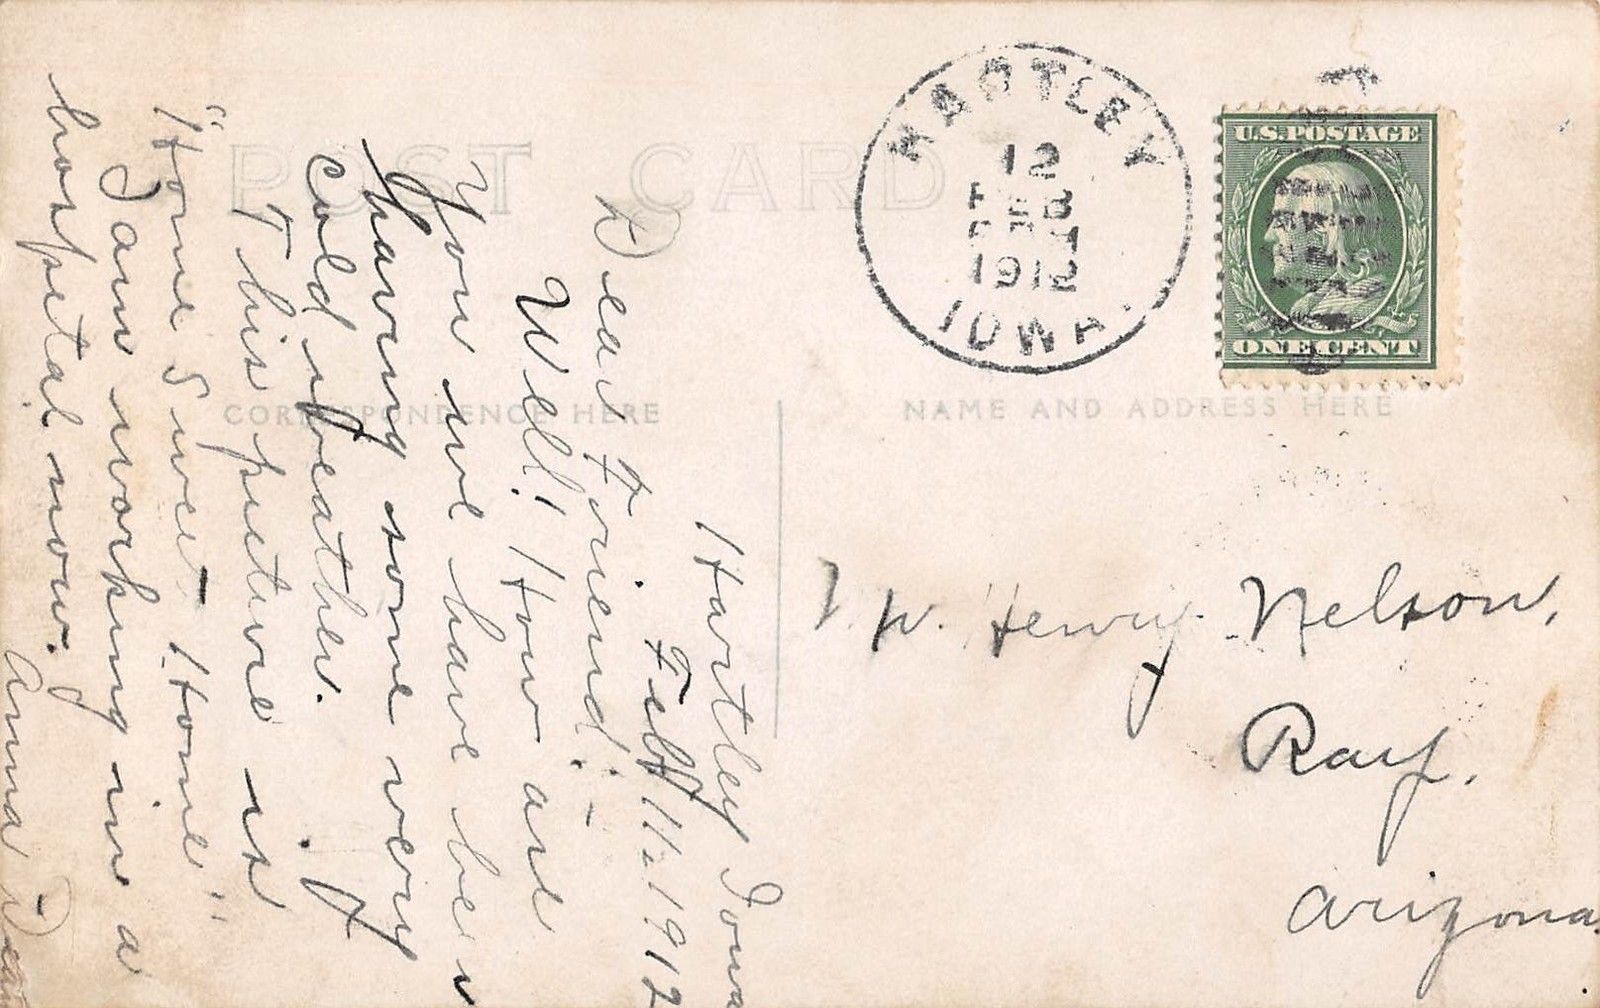 POST CARD
CORRESPONDENCE HERE
NAME AND ADDRESS HERE
HARTLEY
12
FEB
1912
IOWA.
U.S. POSTAGE
ONE CENT
Hartley Iowa
Feb 11-1912
Dear Friend:-
Well! How are
you we have been
having some very
cold weather.
This picture is
"Home Sweet Home"
I am working in a
hospital now.
Anna
W. Henry Nelson,
Ray,
Arizona.